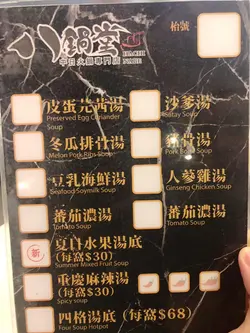 八鍋堂
BA GHI
NABE
平日火鍋專門店
枱號
皮蛋芫茜湯
Preserved Egg Coriander
Soup
沙爹湯
Satay Soup
冬瓜排骨湯
Melon Pork Ribs Soup
豬骨湯
Pork Bone Soup
豆乳海鮮湯
Seafood Soymilk Soup
人參雞湯
Ginseng Chicken Soup
蕃茄濃湯
Tomato Soup
蕃茄濃湯
Tomato Soup
新
夏日水果湯底
(每窩$30)
Summer Mixed Fruit Soup
重慶麻辣湯
(每窩$30)
Spicy soup
四格湯底 (每窩$68)
Four Soup Hotpot